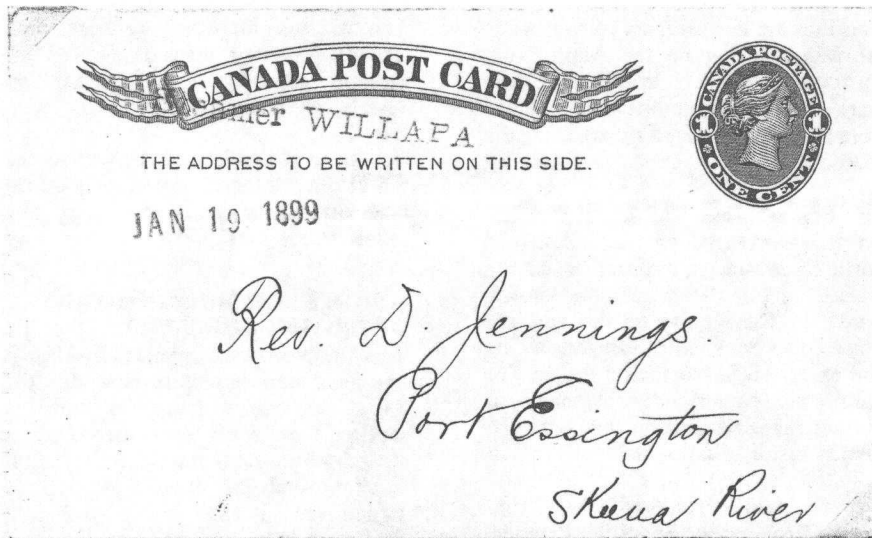 CANADA POST CARD
WILLAPA
THE ADDRESS TO BE WRITTEN ON THIS SIDE.
CANADA POSTAGE
1 1
ONE CENT
JAN 19 1899
Rev. D. Jennings.
Port Essington
Skeena River